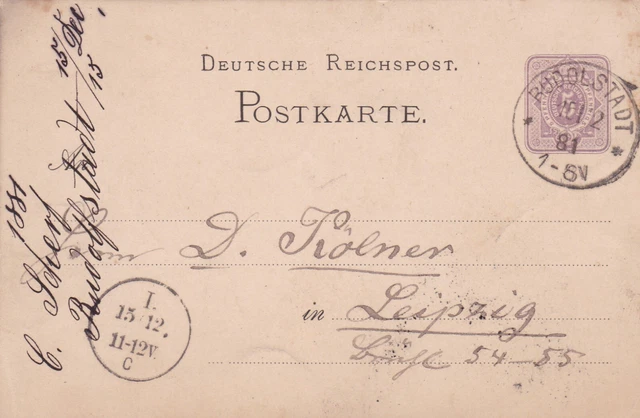 DEUTSCHE REICHSPOST.
POSTKARTE.
RUDOLSTADT
81
1-8V
D. Kölner
in Leipzig
54-55
I.
15 12.
11-12V.
C
1881
Rudolstadt 15/15 Dec.